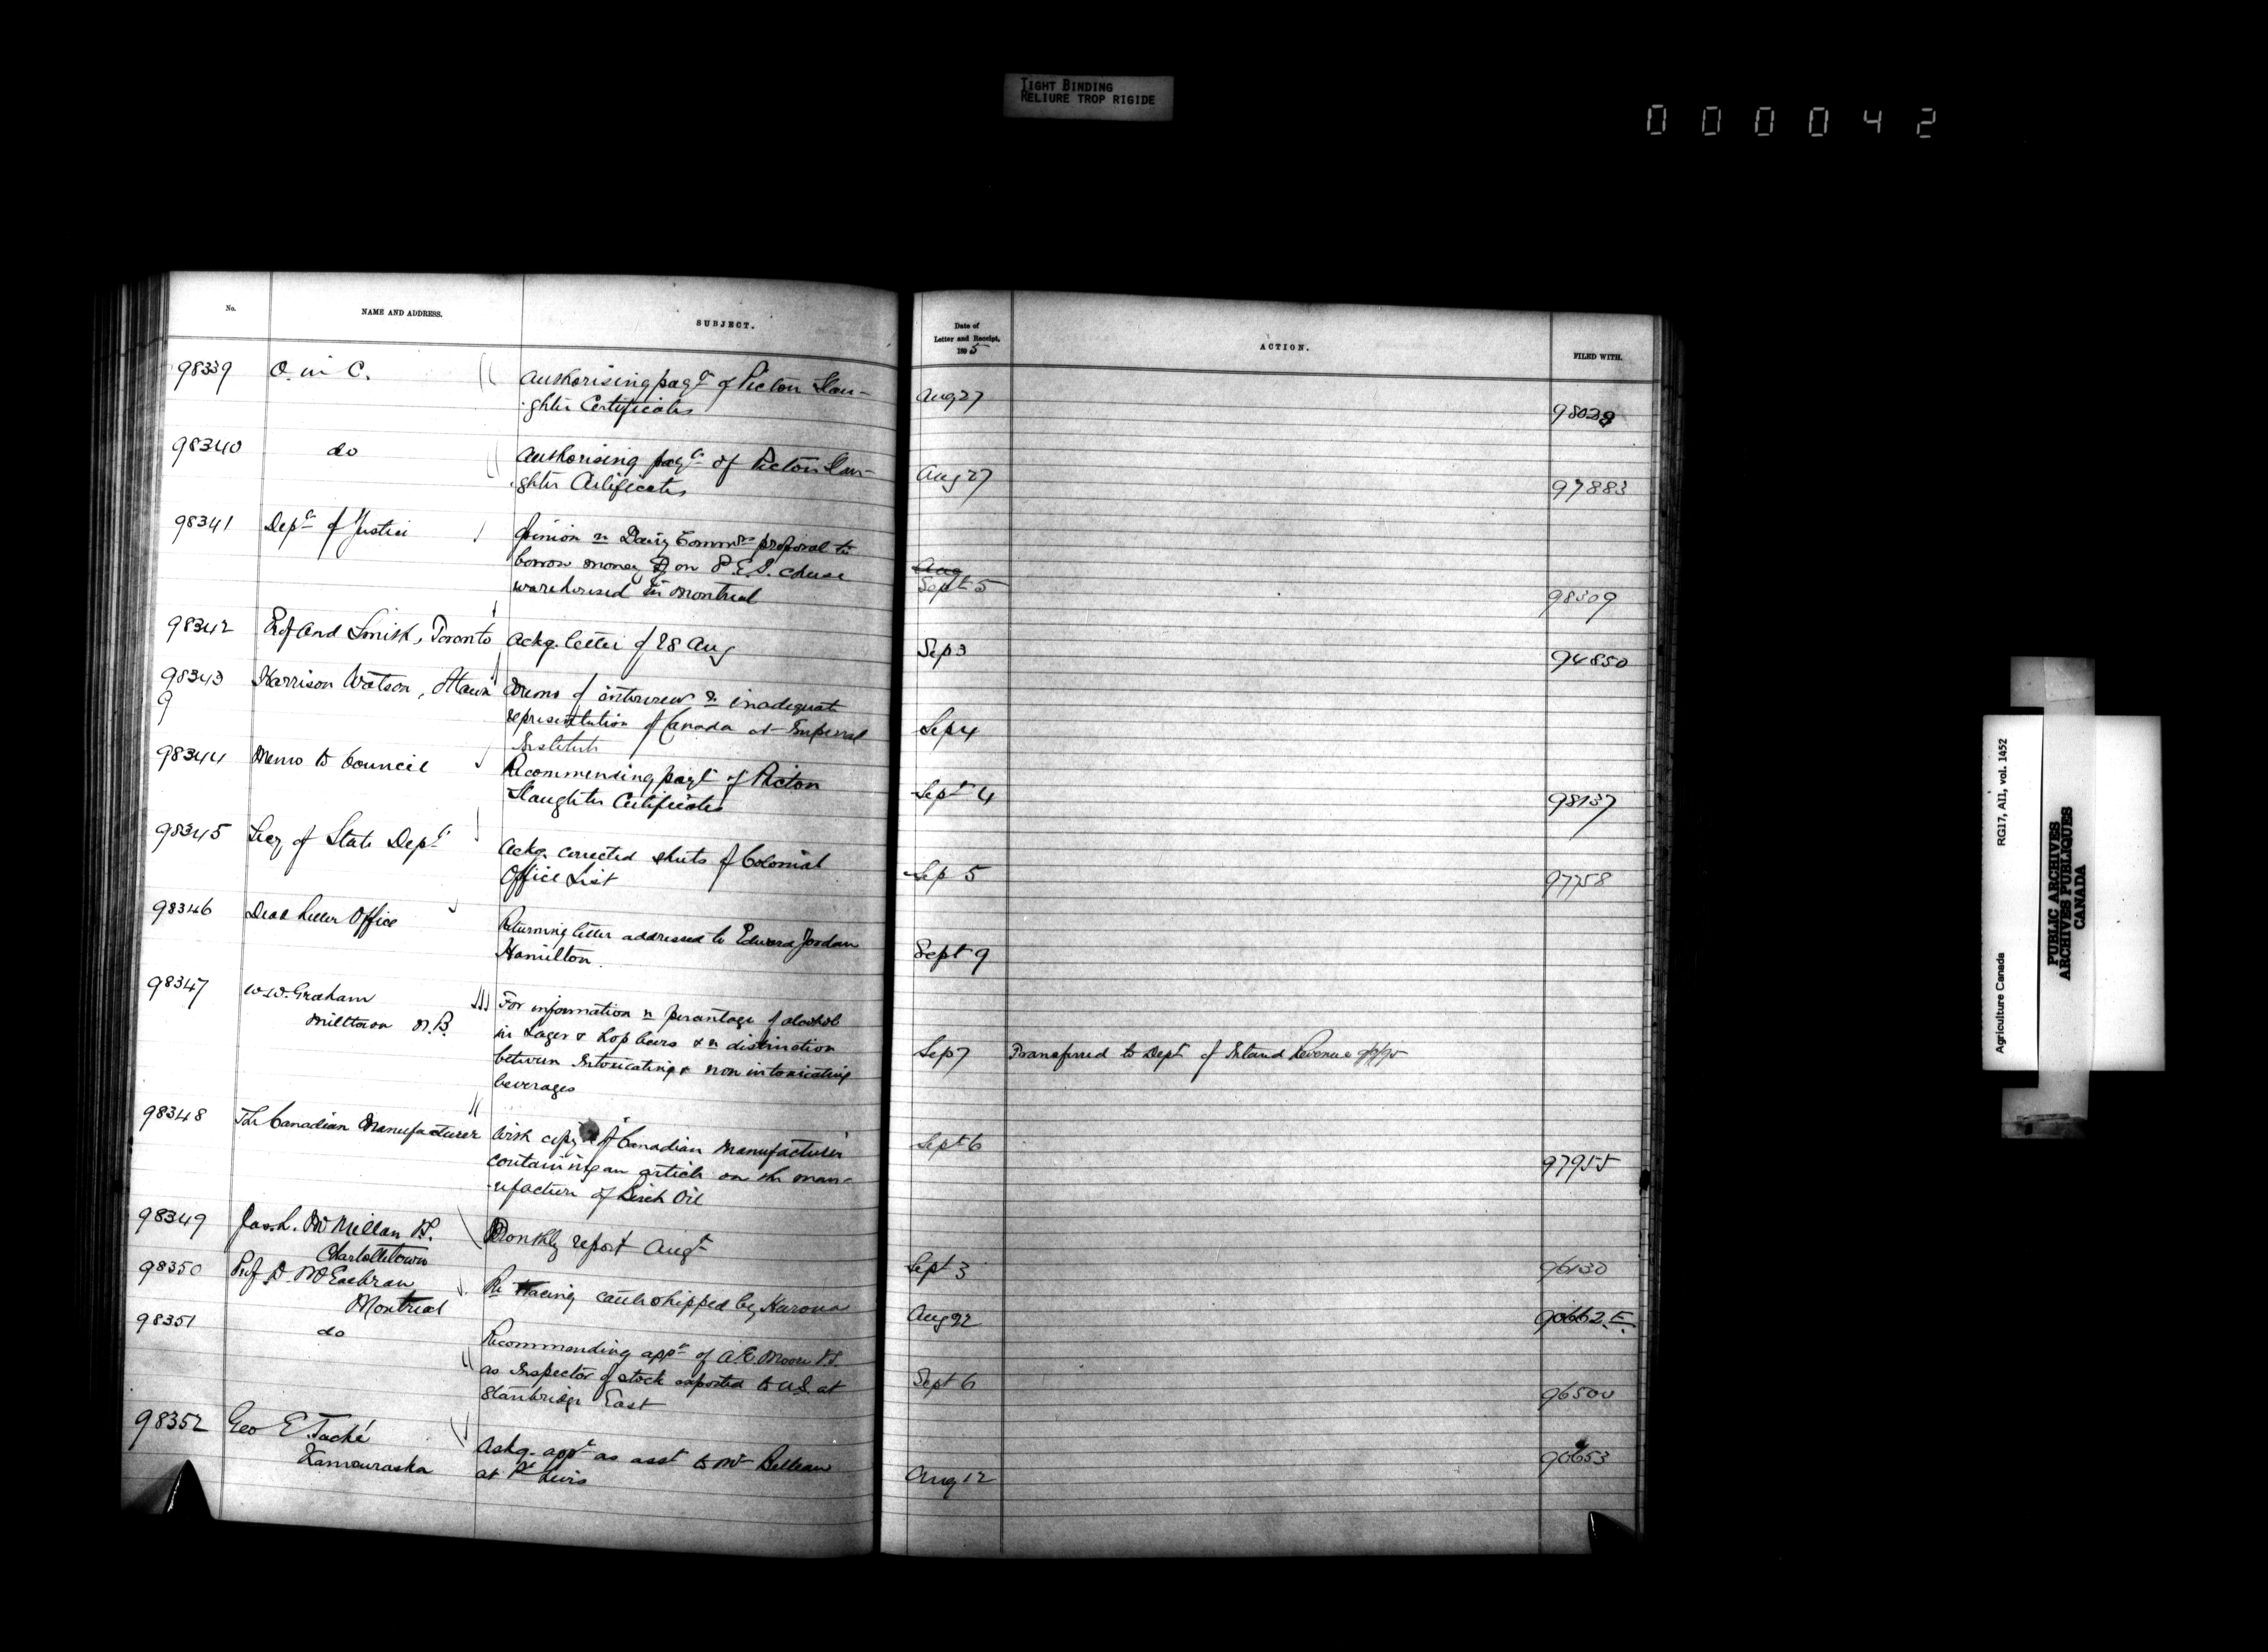 TIGHT BINDING
RELIURE TROP RIGIDE
000042
No.
NAME AND ADDRESS.
SUBJECT.
Date of
Letter and Receipt,
1895
ACTION.
FILED WITH.
98339 O. in C. Authorising pay^t of Picton Slau-
ghter Certificates
Aug 27
98340 do Authorising pay^t of Picton Slau-
ghter Certificates
Aug 27 97883
98341 Dep^t of Justice Opinion re Dairy Comm^rs proposal to
borrow money on P.E.I. cheese
warehoused in Montreal
Aug
Sept 5 98309
98342 Smith, Toronto Ackg. letter of 28 Aug
Sep 3 94850
98343 Harrison Watson, Ottawa Memo of interview re inadequate
9 representation of Canada at Imperial
Institute
Sep 4
98344 Memo to Council Recommending pay^t of Picton
Slaughter Certificates
Sept 4 98137
98345 Secy of State Dep^t Ackg. corrected sheets of Colonial
Office List
Sep 5 97758
98346 Dead Letter Office Returning letter addressed to Edward Jordan
Hamilton.
Sept 9
98347 W.W. Graham For information re percentage of alcohol
Milltown N.B. in Lager & hop beers & re distinction
between Intoxicating & non intoxicating
beverages
Sep 7 Transferred to Dept of Inland Revenue
98348 The Canadian Manufacturer With copy of "Canadian Manufacturer"
containing an article on the man-
ufacture of Birch Oil
Sept 6 97955
98349 Jas. L. McMillan V.S. Monthly report Aug^t
Charlottetown
Sept 3 96130
98350 Prof D. McEachran Re tracing cattle shipped by Hurona
Montreal
Aug 22 90662.E.
98351 do Recommending app^t of A.E. Moore V.S.
as Inspector of stock exported to U.S. at
Stanbridge East
Sept 6 96500
98352 Geo E. Taché Ackg. app^t as asst to Mr Belleau
Kamouraska at Pt Levis
Aug 12 90653
Agriculture Canada RG17, AII, vol. 1452
PUBLIC ARCHIVES
ARCHIVES PUBLIQUES
CANADA